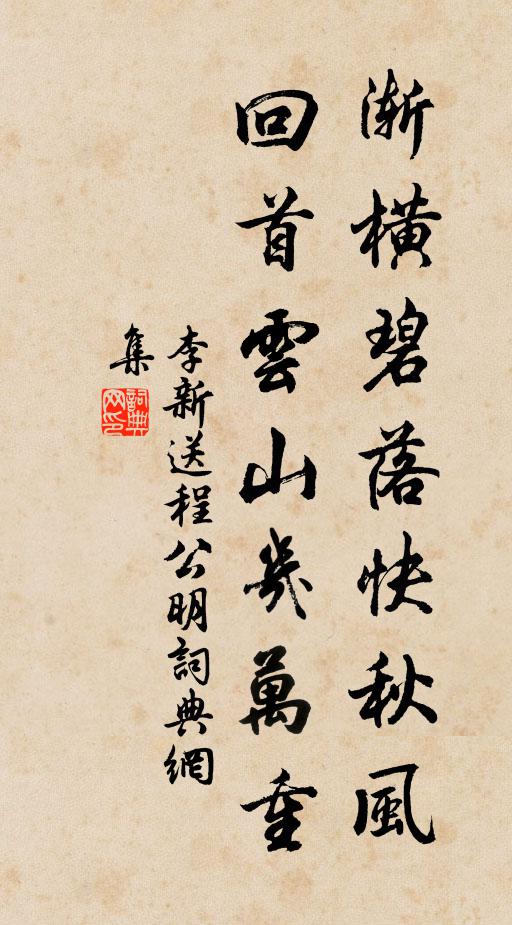 渐橫碧落快秋風
回首雲山幾萬重
李新送程公明詞典網
集
詞典
网印